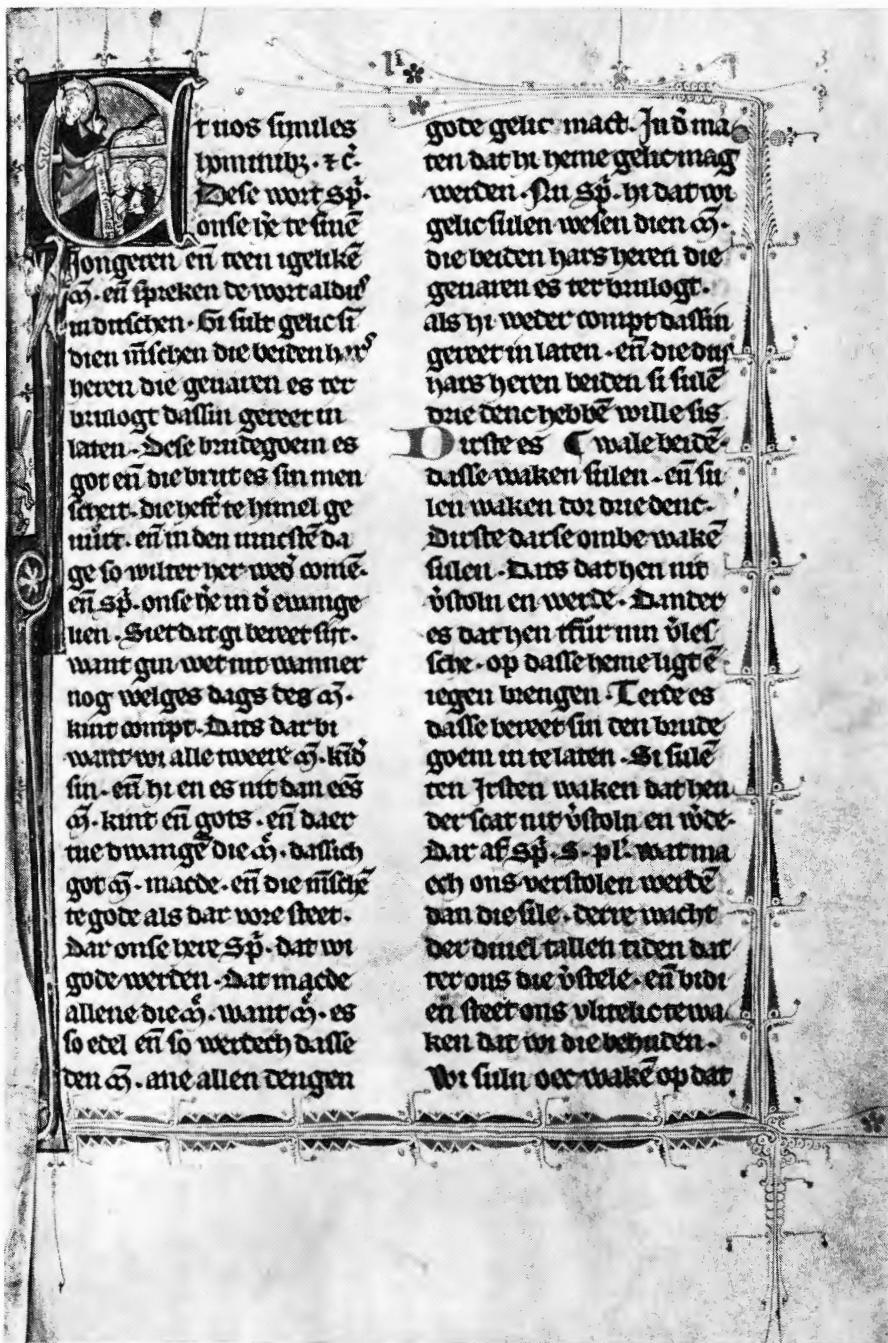 Et uos similes
hominibꝫ · ⁊ c̃·
Dese wort sp̃·
onse h̃e te sinē
jongeren en̄ teen igelikē
m̃· en̄ spreken de wort aldus
in ditschen · Gi sult gelic si
dien m̃schen die beiden hars
heren die geuaren es ter
brulogt dassin gereet in
laten · Dese brudegoem es
got en̄ die brut es sin men
scheit · die heft te himel ge
uürt · en̄ in den iuncstē da
ge so wilter her wed̃ comē·
en̄ sp̃· onse h̃e in d̃ ewange
lien · Siet dat gi bereet sijt·
want gin wet nit wanner
nog welges dags des m̃·
kint compt · Dats dar bi
want wi alle tweere m̃· kīd̃
sin · en̄ hi en es nit dan eēs
m̃· kint en̄ gots · en̄ daer
tue dwangē die m̃· dassich
got m̃· macde · en̄ die m̃schē
te gode als dar vore steet ·
Dar onse here sp̃· dat wi
gode werden · Dat macde
allene die m̃· want m̃· es
so edel en̄ so werdech dasse
den m̃· ane allen dengen
gode gelic mact · In d̃ ma
ten dat hi heme gelic mag
werden · Nu sp̃· hi dat wi
gelic sulen wesen dien m̃·
die beiden hars heren die
geuaren es ter brulogt ·
als hi weder compt dassin
gereet in laten · en̄ die dus
hars heren beiden si sulē
drie denc hebbē wille sis
Dirste es ¶ wale beidē·
dasse waken sulen · en̄ su
len waken tor drie denc·
Dirste darse ombe wakē
sulen · Dats dat hen nit
v̄stoln en werde · Dander
es dat hen tfür nin v̄les
sche · op dasse heme ligt ē
iegen brengen · Terde es
dasse bereet sin den brude
goem in te laten · Si sulē
ten Irsten waken dat hen
der scat nit v̄stoln en w̄de·
Dar af sp̃· s· pl̃· wat ma
ech ons verstolen werdē
dan die sile · derre wacht
der duuel tallen tiden dat
ter ons die v̄stele · en̄ bidi
en̄ steet ons vlitelic te wa
ken dat wi die behuden ·
Wi suln oec wakē op dat